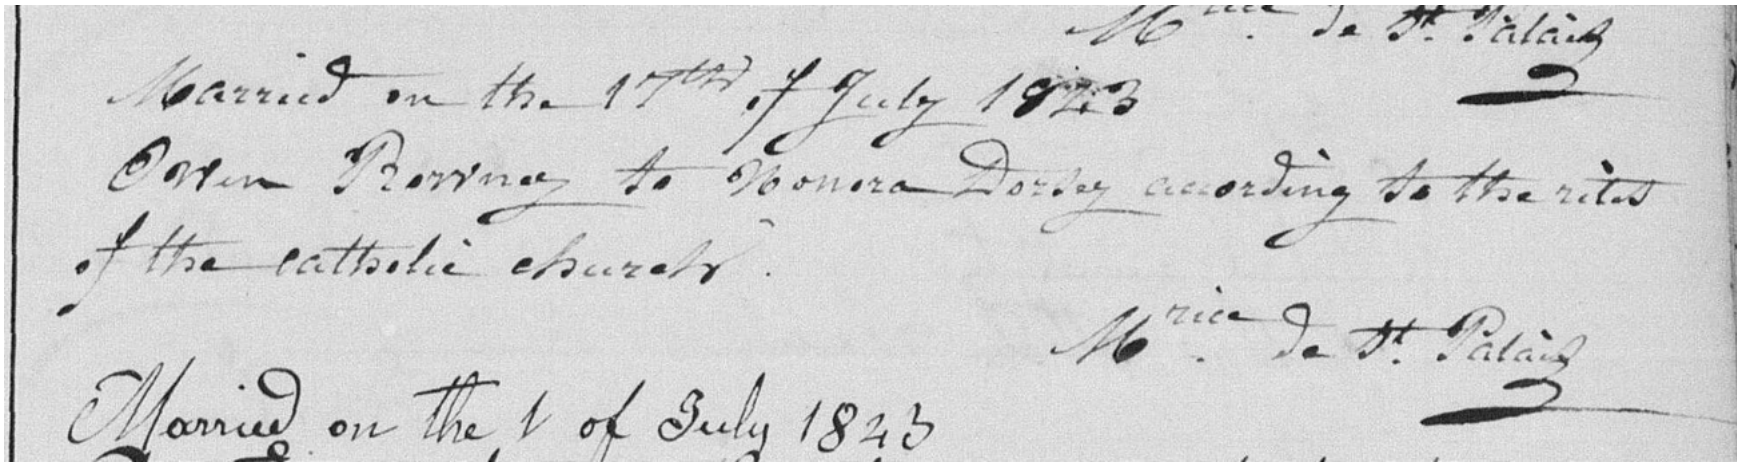 Mrice. de St. Palais
Married on the 17th of July 1843
Owen Rowney to Honora Dorsey according to the rites
of the catholic church.
Mrice. de St. Palais
Married on the 1 of July 1843